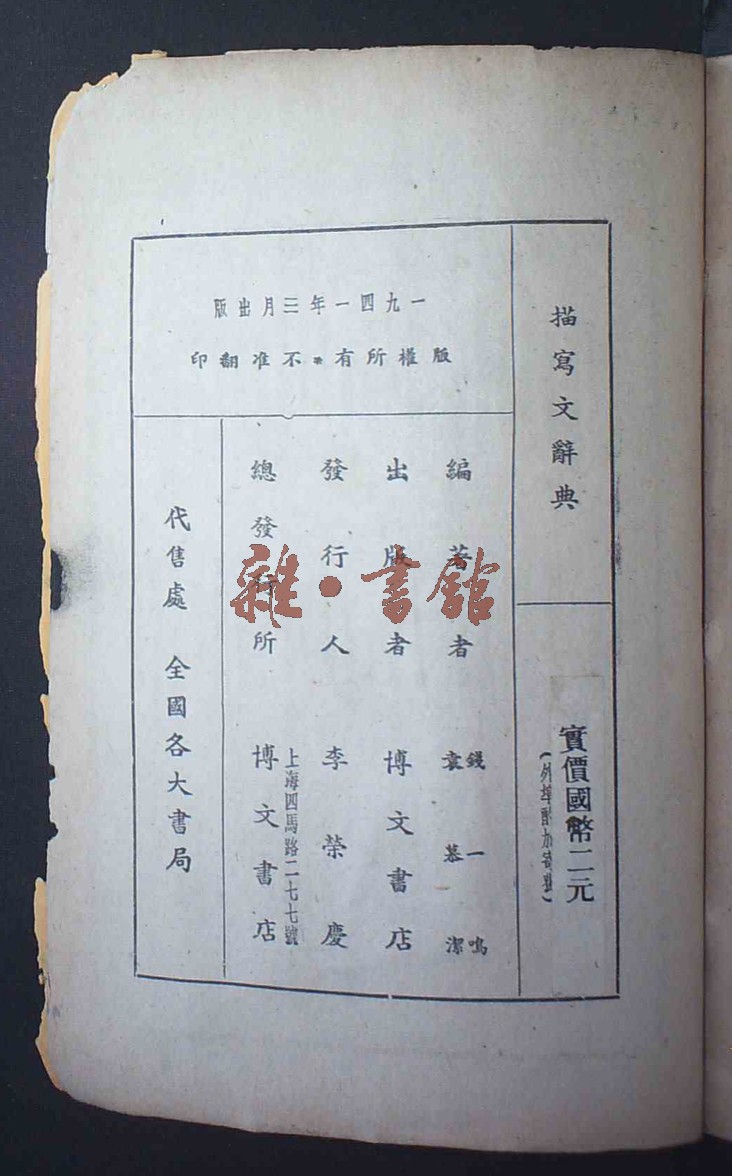 描寫文辭典
實價國幣二元
(外埠酌加寄費)
一九四一年三月出版
版權所有※不准翻印
編著者 錢一鳴
袁慕潔
出版者 博文書店
發行人 李榮慶
上海四馬路二七七號
總發行所 博文書店
代售處 全國各大書局
雜·書館